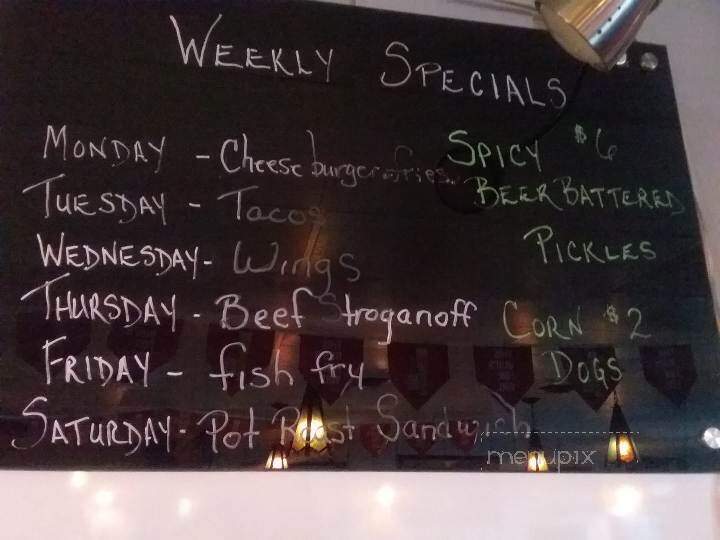 WEEKLY SPECIALS
MONDAY - Cheeseburger & fries
TUESDAY - Tacos
WEDNESDAY - Wings
THURSDAY - Beef Stroganoff
FRIDAY - fish fry
SATURDAY - Pot Roast Sandwich
SPICY $6
BEER BATTERED
PICKLES
CORN $2
DOGS
menupix